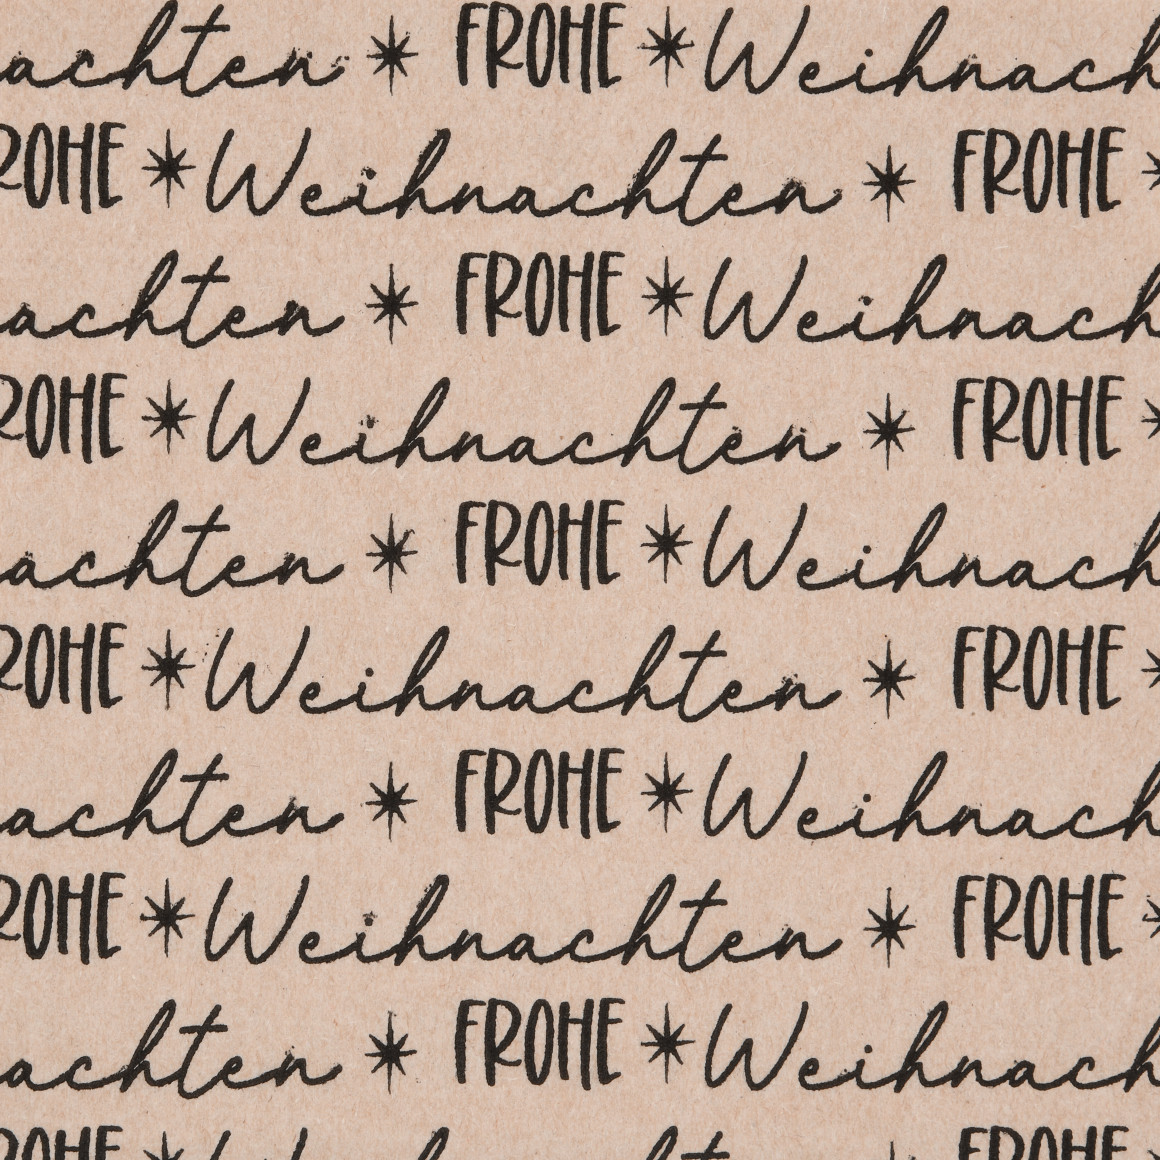 achten FROHE Weihnach
ROHE Weihnachten FROHE
achten FROHE Weihnach
ROHE Weihnachten FROHE
achten FROHE Weihnach
ROHE Weihnachten FROHE
achten FROHE Weihnach
ROHE Weihnachten FROHE
achten FROHE Weihnach
ROHE Weihnachten FROHE